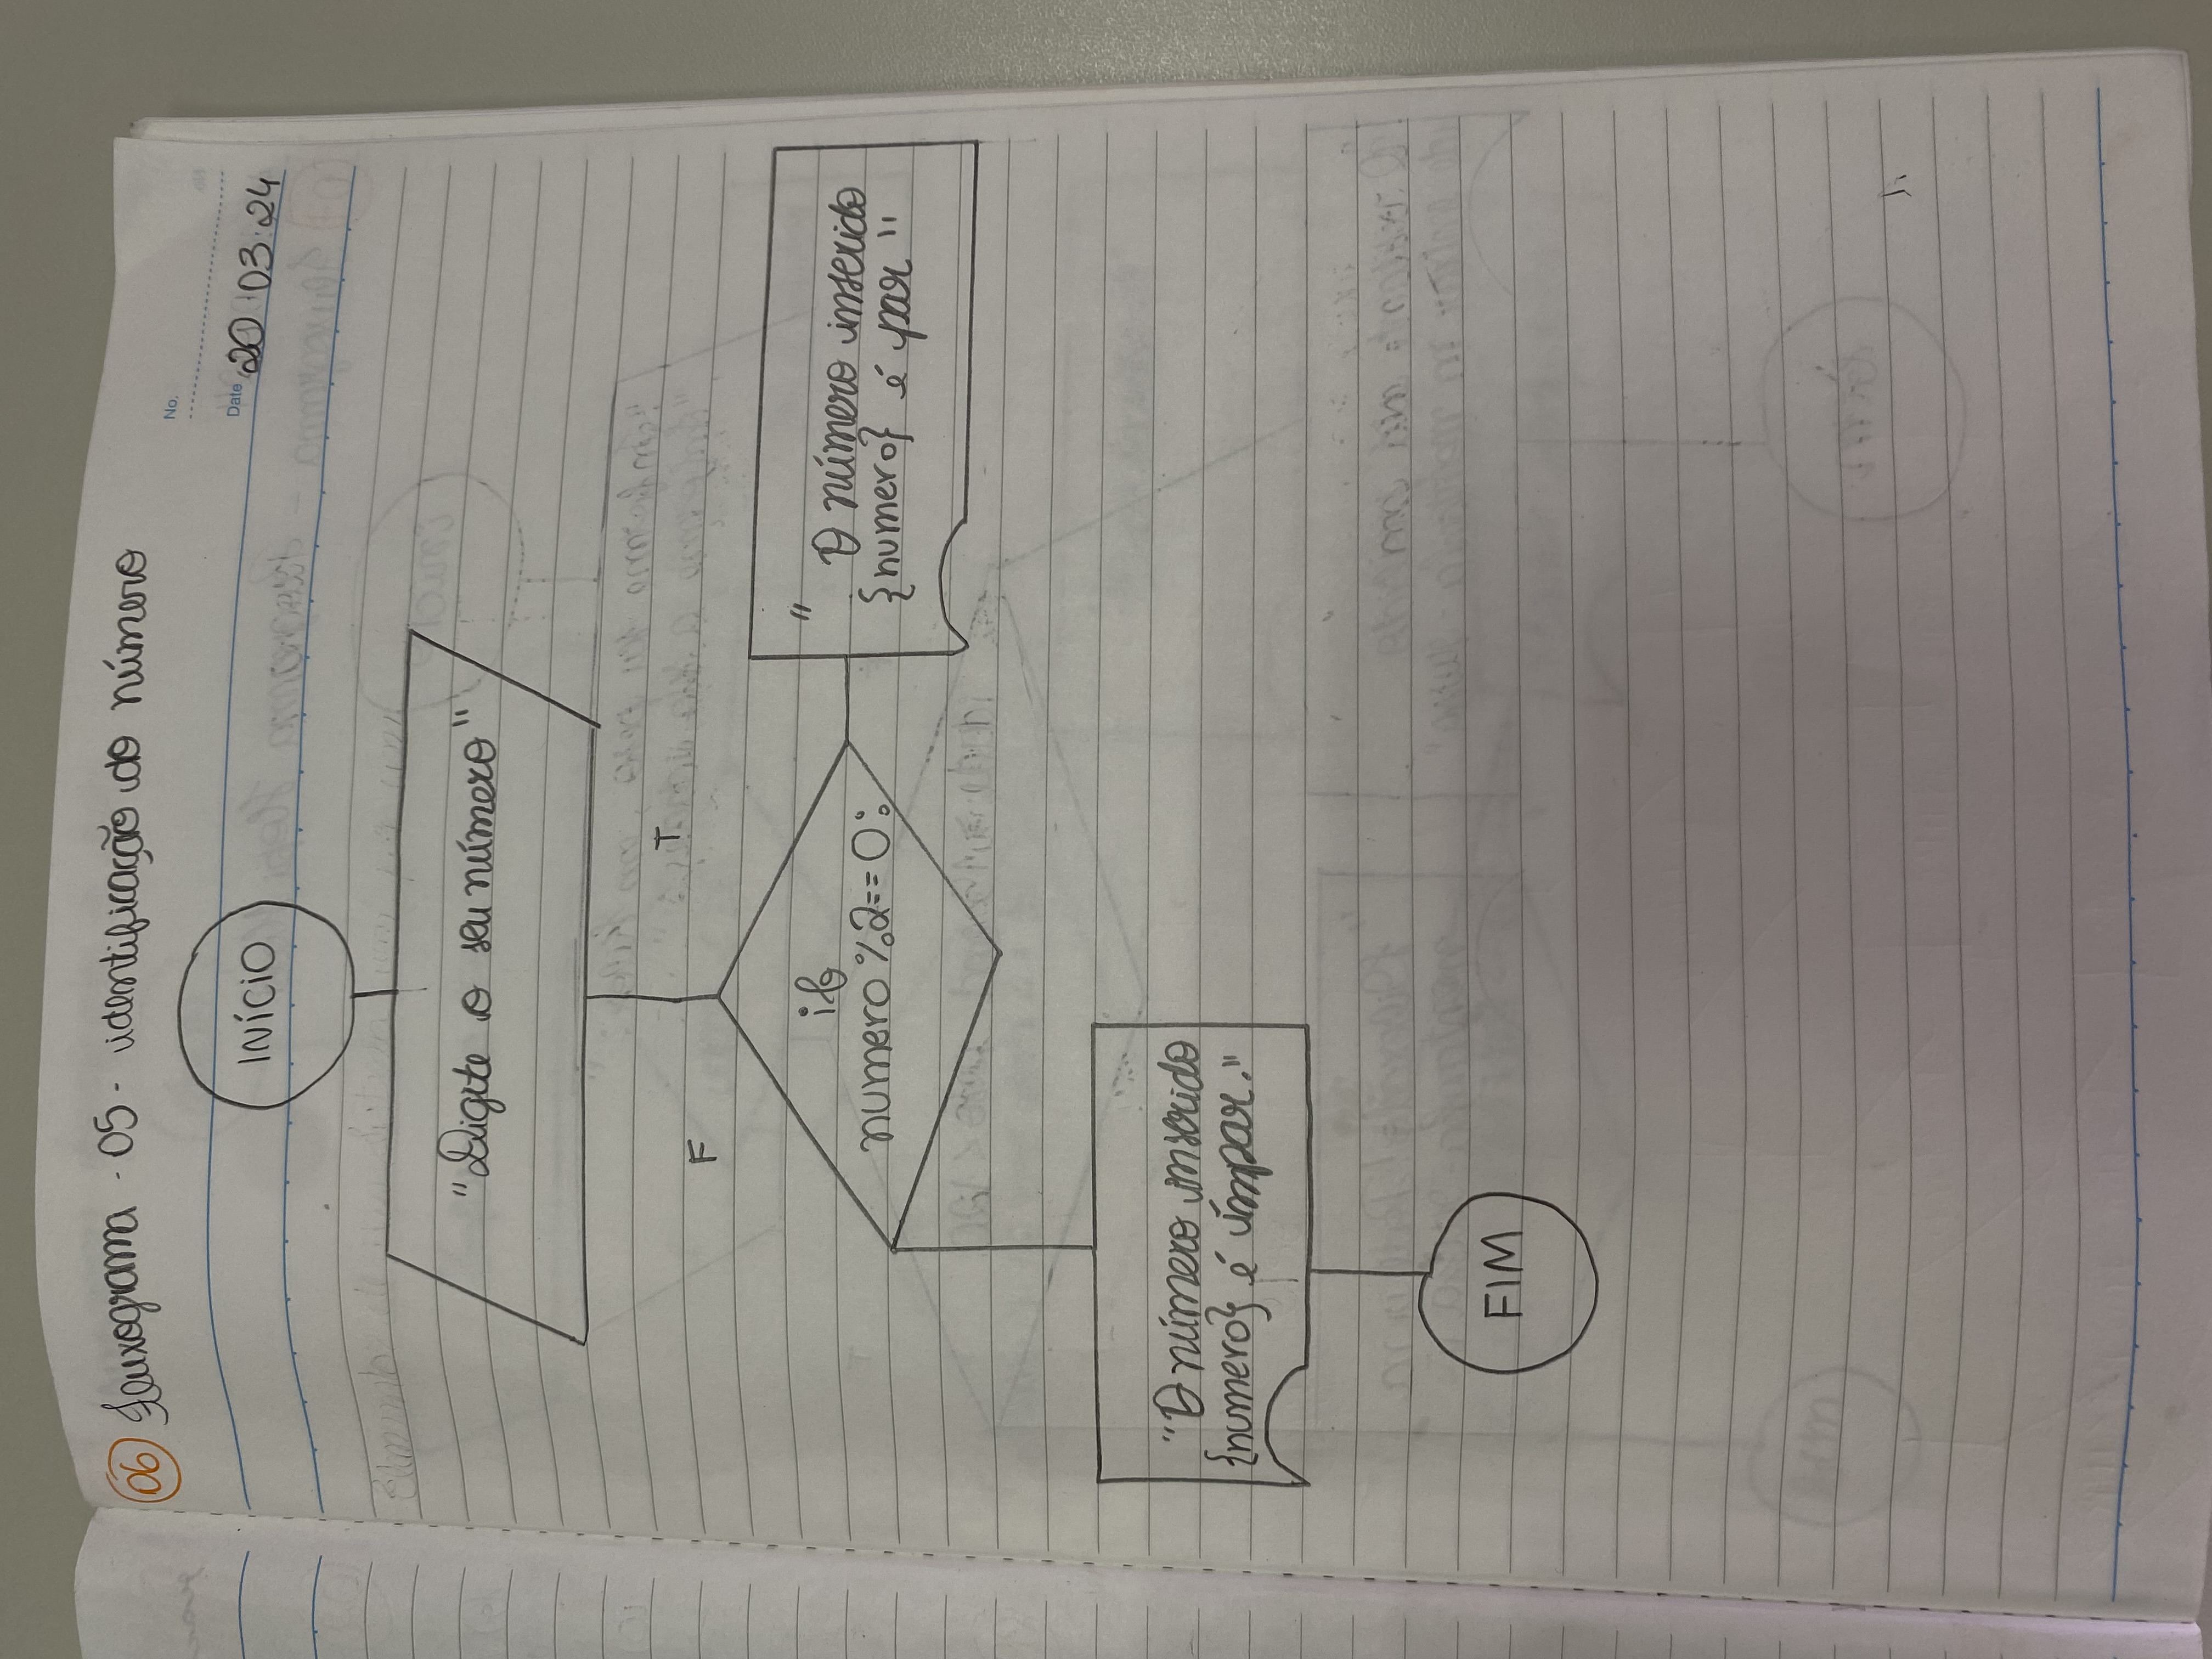 06 Fluxograma - 05 - identificação do número
No.
Date 20 03 24
INÍCIO
"Digite o seu número"
T
F
if
numero %2==0:
" O número inserido
{numero} é par "
"O número inserido
{numero} é ímpar."
FIM